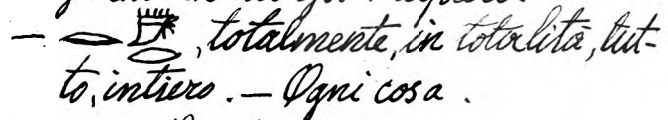 — 𓂋 𓂋, totalmente, in totalità, tut-
to, intiero. — Ogni cosa.